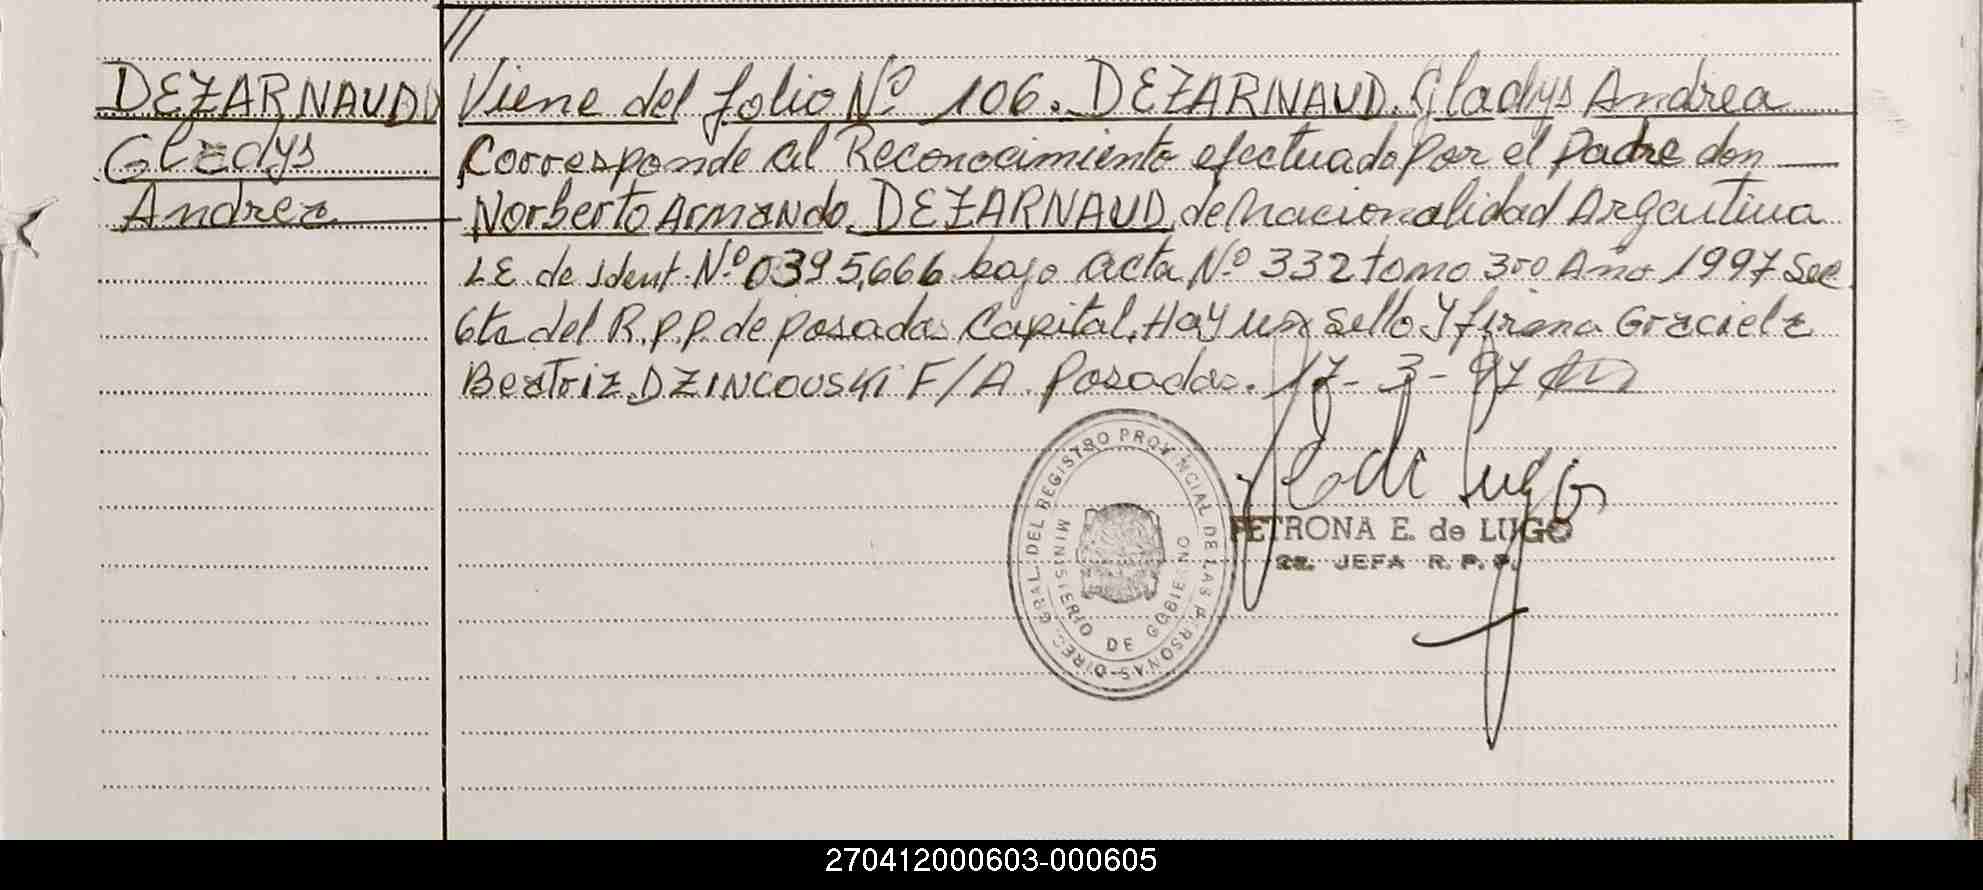 //
DEZARNAUD
Gladys
Andrea
Viene del folio Nº 106. DEZARNAUD. Gladys Andrea
Corresponde al Reconocimiento efectuado por el padre don —
Norberto Armando. DEZARNAUD, de nacionalidad Argentina
LE. de Ident. Nº 0395,666 bajo acta Nº 332 tomo 3ro Año 1997 Sec
6ta del R.P.P. de posadas Capital. Hay un sello y firma Graciela
Beatriz. DZINCOUSKI F/A. Posadas. 17-3-97
DIREC. GRAL. DEL REGISTRO PROVINCIAL DE LAS PERSONAS
MINISTERIO DE GOBIERNO
de Lugo
PETRONA E. de LUGO
JEFA R. P. P.
270412000603-000605